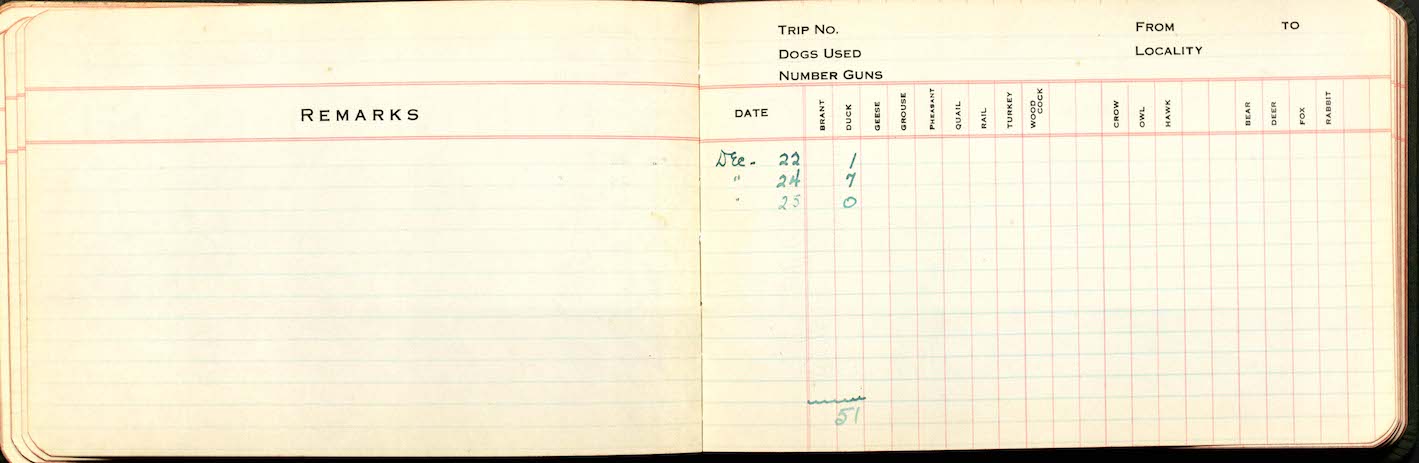 REMARKS
TRIP NO. FROM TO
DOGS USED LOCALITY
NUMBER GUNS
DATE BRANT DUCK GEESE GROUSE PHEASANT QUAIL RAIL TURKEY WOOD COCK CROW OWL HAWK BEAR DEER FOX RABBIT
Dec - 22 1
" 24 7
" 25 0
51